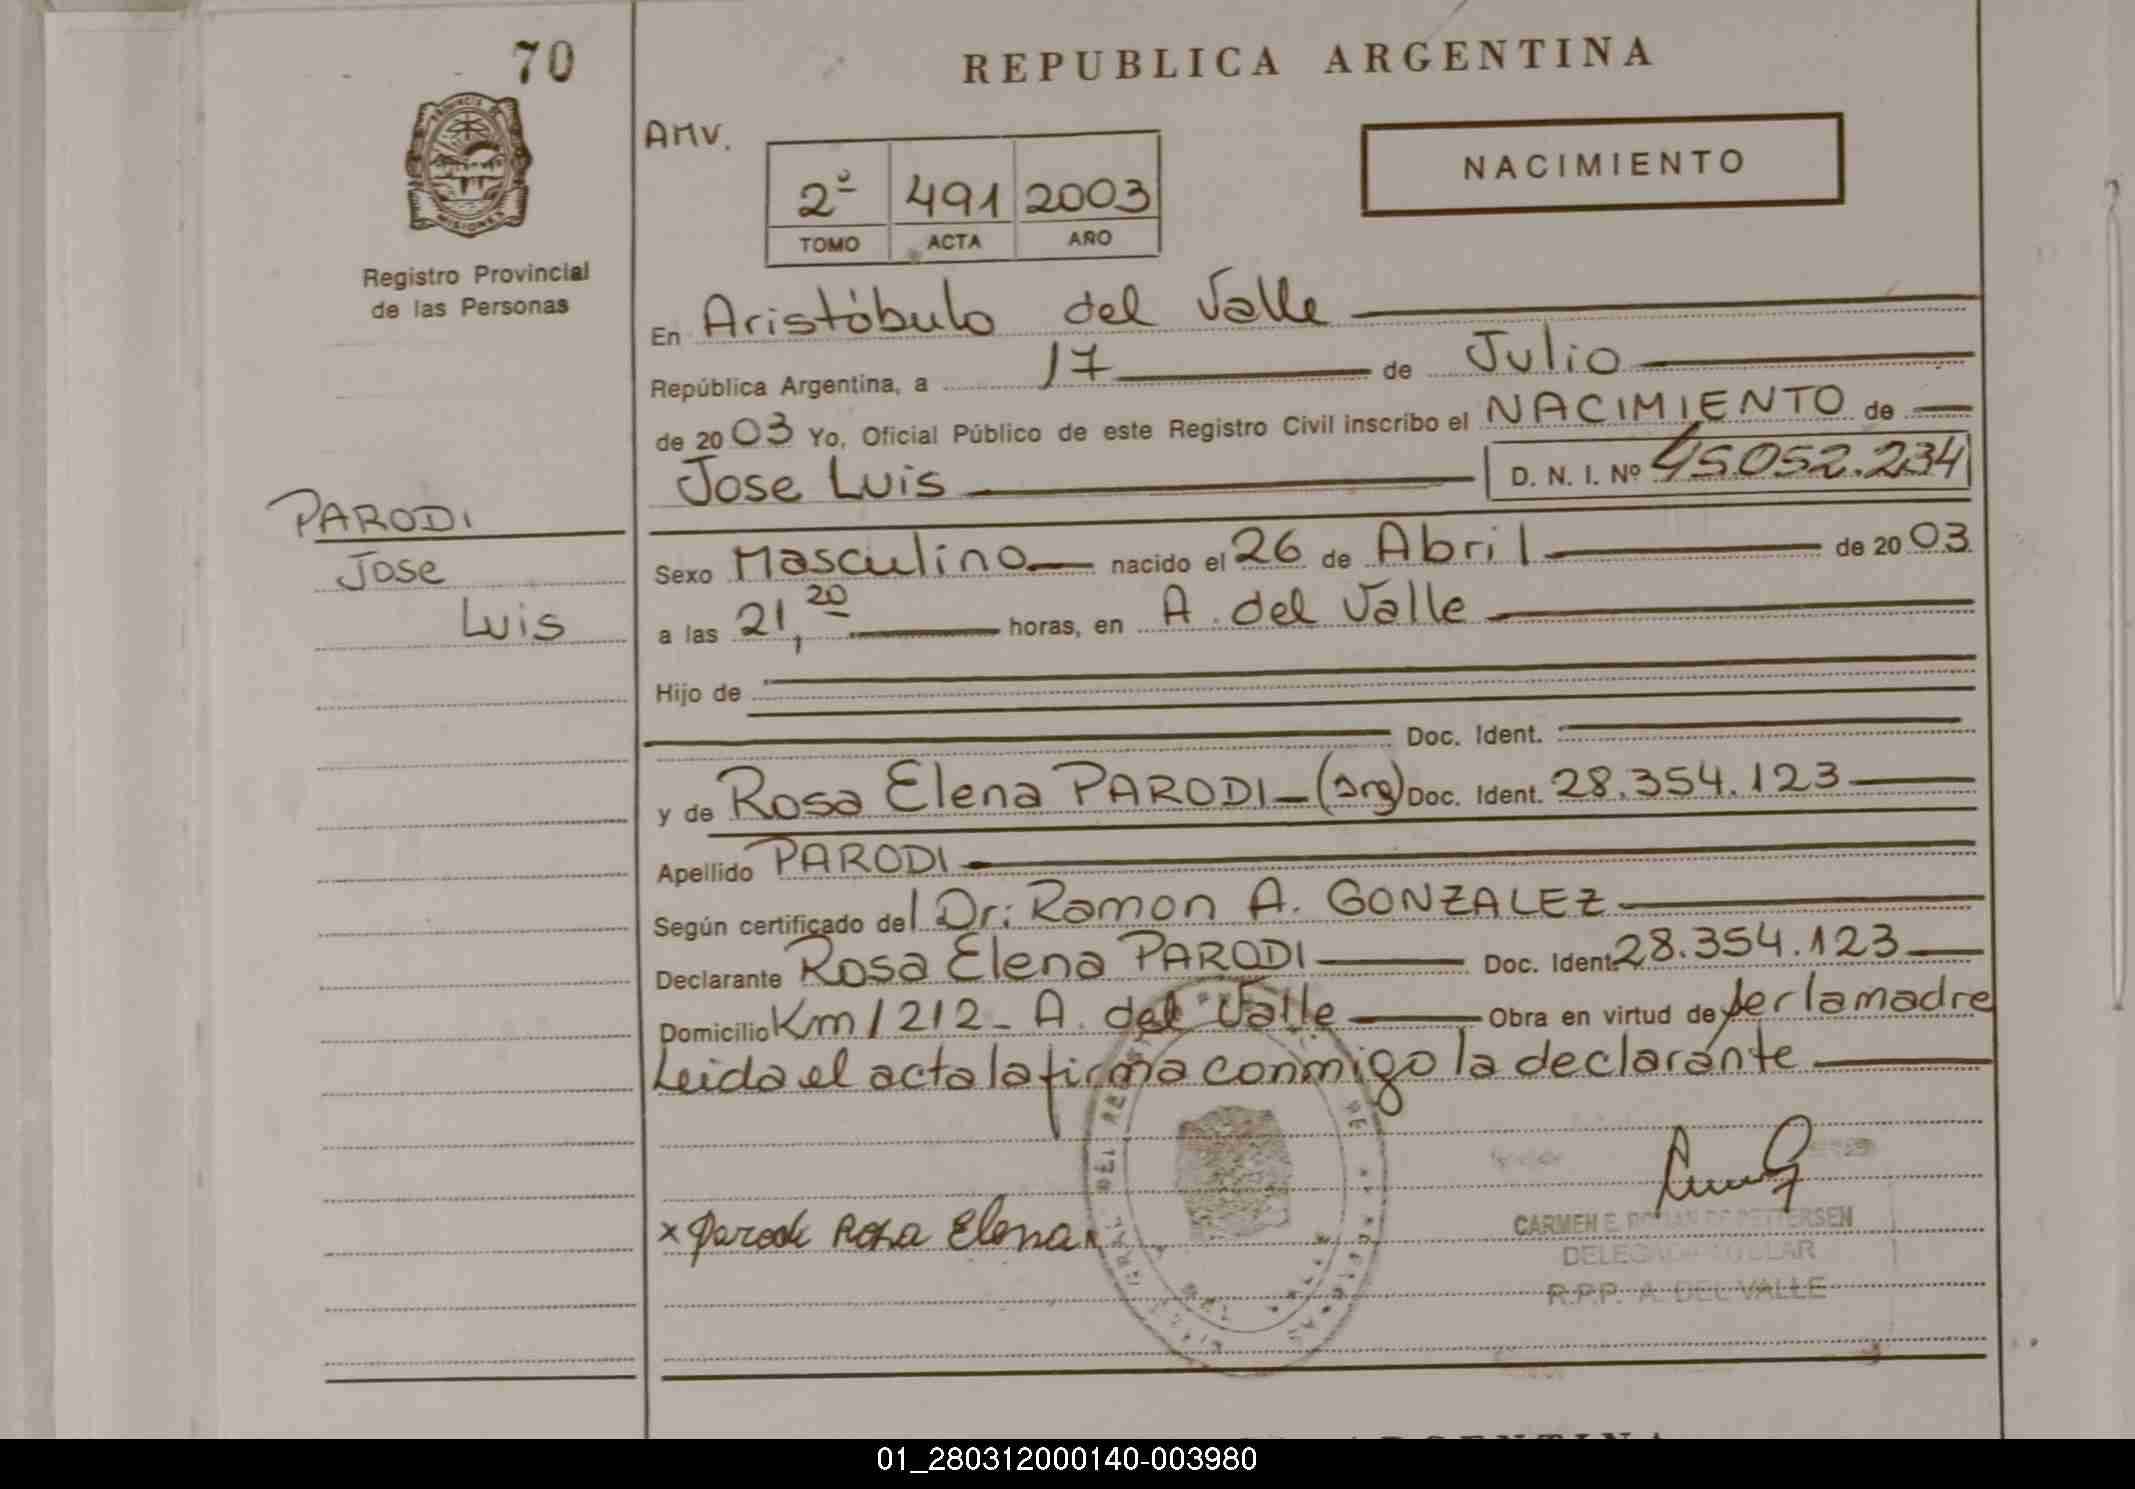 70
REPUBLICA ARGENTINA
AMV.
NACIMIENTO
2º 491 2003
TOMO ACTA AÑO
PROVINCIA DE
MISIONES
Registro Provincial
de las Personas
En Aristóbulo del Valle
República Argentina, a 17 de Julio
de 2003 Yo, Oficial Público de este Registro Civil inscribo el NACIMIENTO de
Jose Luis D. N. I. Nº 45.052.234
PARODI
Jose
Luis
Sexo Masculino nacido el 26 de Abril de 2003
a las 21,20 horas, en A. del Valle
Hijo de
Doc. Ident.
y de Rosa Elena PARODI (arg) Doc. Ident. 28.354.123
Apellido PARODI
Según certificado del Dr: Ramon A. GONZALEZ
Declarante Rosa Elena PARODI Doc. Ident. 28.354.123
Domicilio Km 1212 - A. del Valle Obra en virtud de ser la madre
Leida el acta la firma conmigo la declarante
x Parodi Rosa Elena
CARMEN E. DE PETTERSEN
R.P.P. A. DEL VALLE
ARGENTINA
01_280312000140-003980